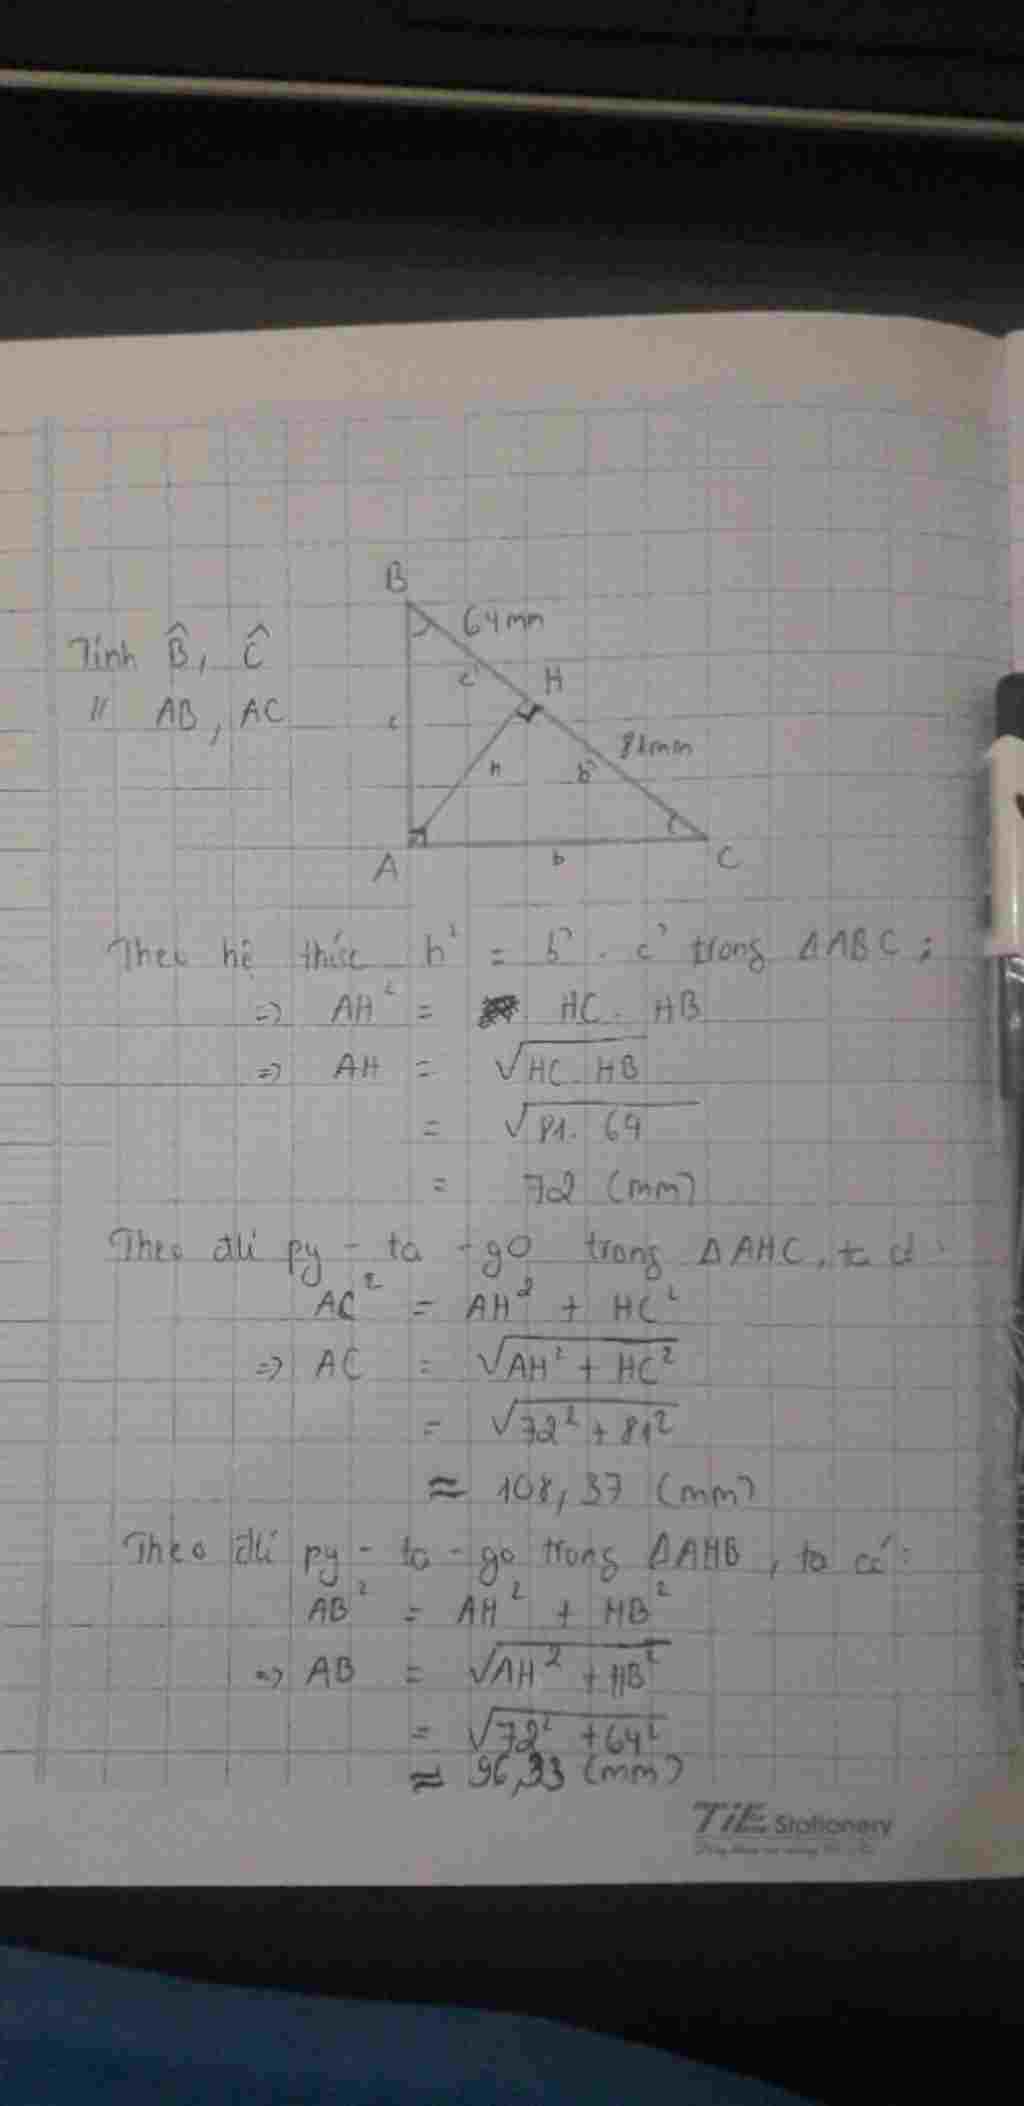 B
64mm
Tính B̂, Ĉ
c' H
" AB, AC
c
81mm
h b'
A b C
Theo hệ thức h² = b' . c' trong ΔABC :
=> AH² = HC . HB
=> AH = √HC . HB
= √81 . 64
= 72 (mm)
Theo đlí py - ta - go trong ΔAHC, ta có :
AC² = AH² + HC²
=> AC = √AH² + HC²
= √72² + 81²
≈ 108,37 (mm)
Theo đlí py - ta - go trong ΔAHB, ta có :
AB² = AH² + HB²
=> AB = √AH² + HB²
= √72² + 64²
≈ 96,33 (mm)
TiE Stationery